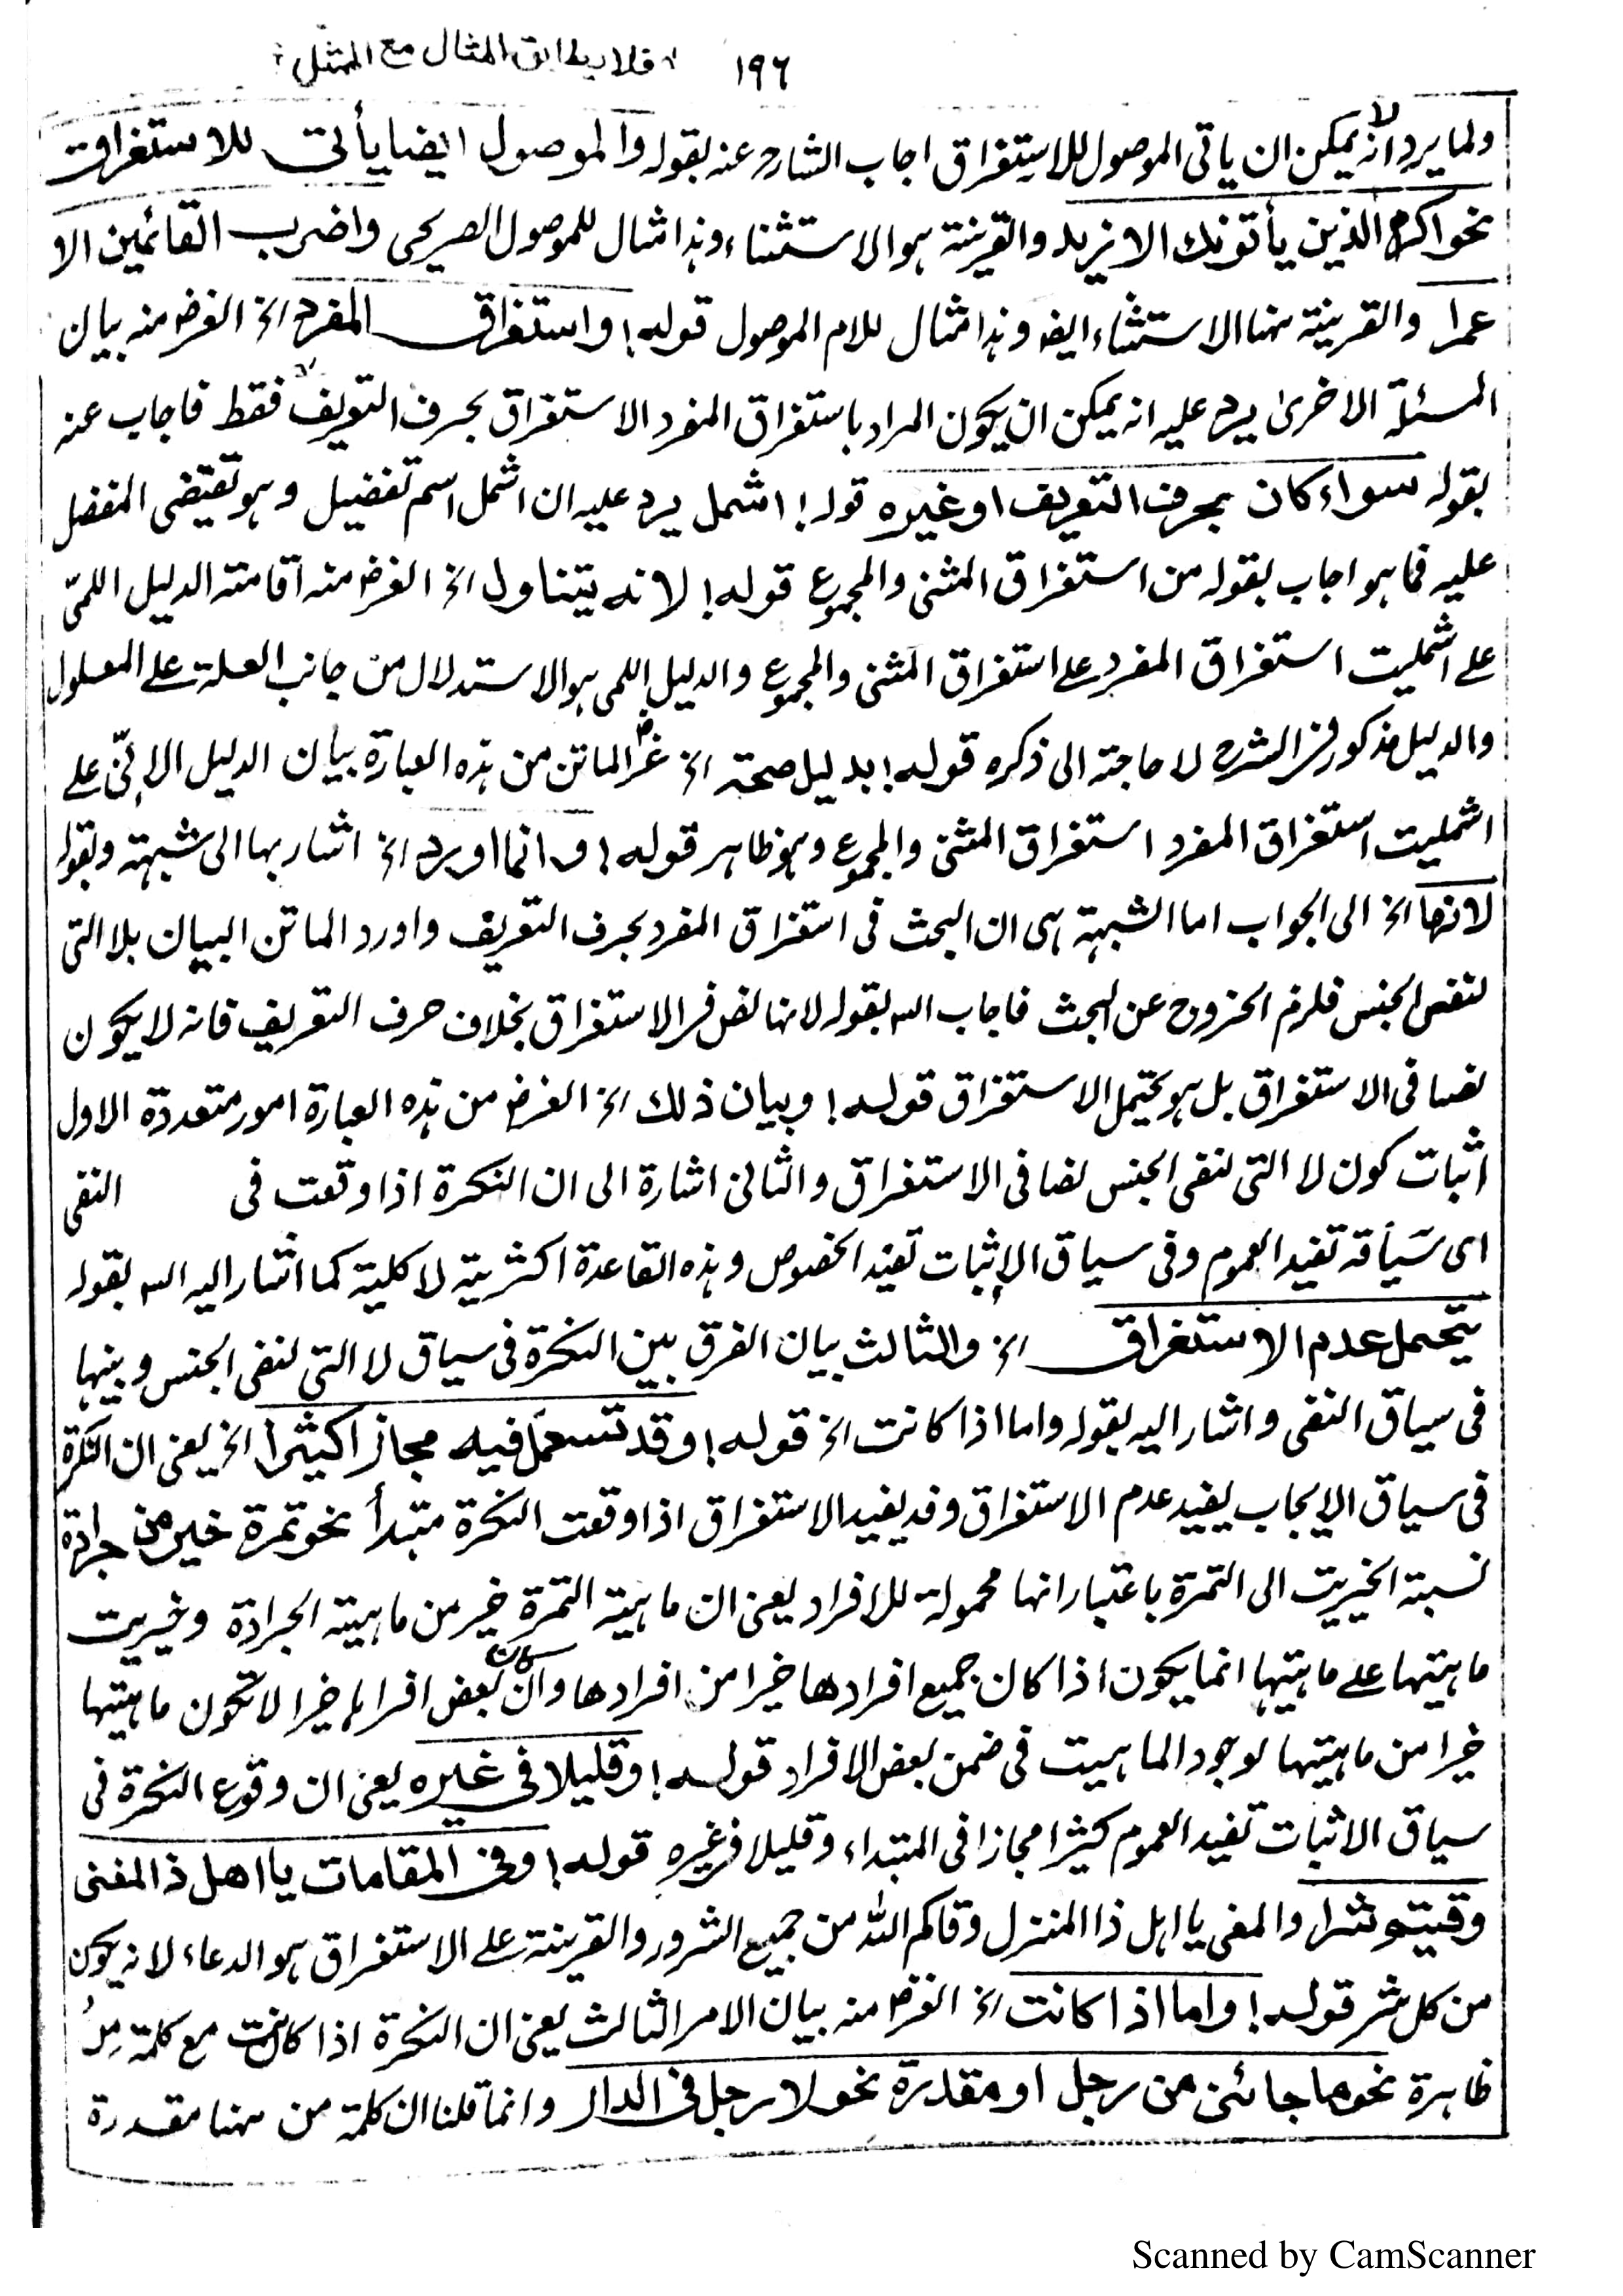 ۱۹۶ فلا يطابق المثال مع الممثل
ولما يرد انه لا يمكن ان ياتى الموصول للاستغراق اجاب الشارح عنه بقوله والموصول ايضا يأتى للاستغراق
نحو اكرم الذين يأتونك الا زيد والقرينة هو الاستثناء وهذا مثال للموصول الصريحى واضرب القائمين الا
عمرا والقرينة ههنا الاستثناء ايضا وهذا مثال للام الموصول قوله! واستغراق المفرد الخ الغرض منه بيان
المسئلة الاخرى يرد عليه انه يمكن ان يكون المراد باستغراق المفرد الاستغراق بحرف التعريف فقط فاجاب عنه
بقوله سواء كان بحرف التعريف او غيره قوله! اشمل يرد عليه ان اشمل اسم تفضيل وهو تقتضى المفضل
عليه فما هو اجاب بقوله من استغراق المثنى والمجموع قوله! لانه يتناول الخ الغرض منه اقامته الدليل اللمىّ
على اشمليت استغراق المفرد على استغراق المثنى والمجموع والدليل اللمى هو الاستدلال من جانب العلة على المعلول
والدليل مذكور فى الشرح لا حاجة الى ذكره قوله! بدليل صحة الخ غرض الماتن من هذه العبارة بيان الدليل الانىّ على
اشمليت استغراق المفرد استغراق المثنى والمجموع وهو ظاهر قوله! وانما اورد الخ اشار بها الى شبهة وبقوله
لانها الخ الى الجواب اما الشبهة هى ان البحث فى استغراق المفرد بحرف التعريف واورد الماتن البيان بلا التى
لنفى الجنس فلزم الخروج عن البحث فاجاب الشه بقوله لانها نص فى الاستغراق بخلاف حرف التعريف فانه لا يكون
نصا فى الاستغراق بل هو يحتمل الاستغراق قوله! وبيان ذلك الخ الغرض من هذه العبارة امور متعددة الاول
اثبات كون لا التى لنفى الجنس نصا فى الاستغراق والثانى اشارة الى ان النكرة اذا وقعت فى النفى
اى سياقه تفيد العموم وفى سياق الاثبات تفيد الخصوص وهذه القاعدة اكثرية لا كلية كما اشار اليه الشه بقوله
يحتمل عدم الاستغراق الخ والثالث بيان الفرق بين النكرة فى سياق لا التى لنفى الجنس وبينها
فى سياق النفى واشار اليه بقوله واما اذا كانت الخ قوله! وقد تستعمل فيه مجازا كثيرا الخ يعنى ان النكرة
فى سياق الايجاب يفيد عدم الاستغراق وقد يفيد الاستغراق اذا وقعت النكرة مبتدأ نحو تمرة خير من جرادة
نسبة الخيريت الى التمرة باعتبار انها محمولة للافراد يعنى ان ماهية التمرة خير من ماهيته الجرادة وخيريت
ماهيتها على ماهيتها انما يكون اذا كان جميع افرادها خيرا من افرادها وان كان بعض افرادها خيرا لا تكون ماهيتها
خيرا من ماهيتها لوجود الماهيت فى ضمن بعض الافراد قوله! وقليلا فى غيره يعنى ان وقوع النكرة فى
سياق الاثبات تفيد العموم كثيرا مجازا فى المبتداء وقليلا فى غيره قوله! وفى المقامات يا اهل ذا المغنى
وقيتو شرا والمعنى يا اهل ذا المنزل وقاكم الله من جميع الشرور والقرينة على الاستغراق هو الدعاء لانه يكون
من كل شر قوله! واما اذا كانت الخ الغرض منه بيان الامر الثالث يعنى ان النكرة اذا كانت مع كلمة من
ظاهرة نحو ما جائنى من رجل او مقدرة نحو لا رجل فى الدار وانما قلنا ان كلمة من ههنا مقدرة
Scanned by CamScanner